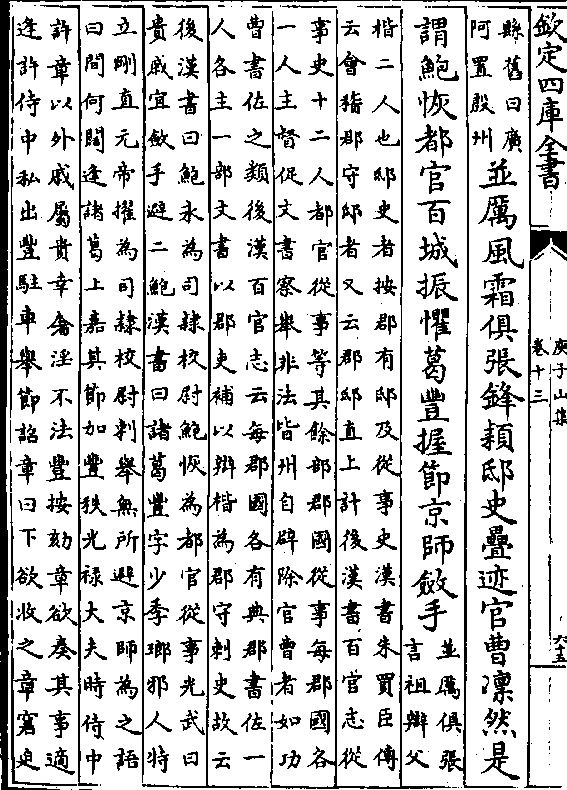 欽定四庫全書
庾子山集
卷十三
六十五
縣舊曰廣
阿置殷州
並厲風霜俱張鋒穎邸史疊迹官曹凜然是
謂鮑恢都官百城振懼葛豐握節京師斂手
並厲俱張
言祖辯父
楷二人也邸史者按郡有邸及從事史漢書朱買臣傳
云會稽郡守邸者又云郡邸直上計後漢書百官志從
事史十二人都官從事等其餘部郡國從事每郡國各
一人主督促文書察舉非法皆州自辟除官曹者如功
曹書佐之類後漢百官志云每郡國各有典郡書佐一
人各主一部文書以郡吏補以辯楷為郡守刺史故云
後漢書曰鮑永為司隸校尉鮑恢為都官從事光武曰
貴戚宜斂手避二鮑漢書曰諸葛豐字少季瑯邪人特
立剛直元帝擢為司隸校尉刺舉無所避京師為之語
曰間何闊逢諸葛上嘉其節加豐秩光祿大夫時侍中
許章以外戚屬貴幸奢淫不法豐按劾章欲奏其事適
逢許侍中私出豐駐車舉節詔章曰下欲收之章窘迫